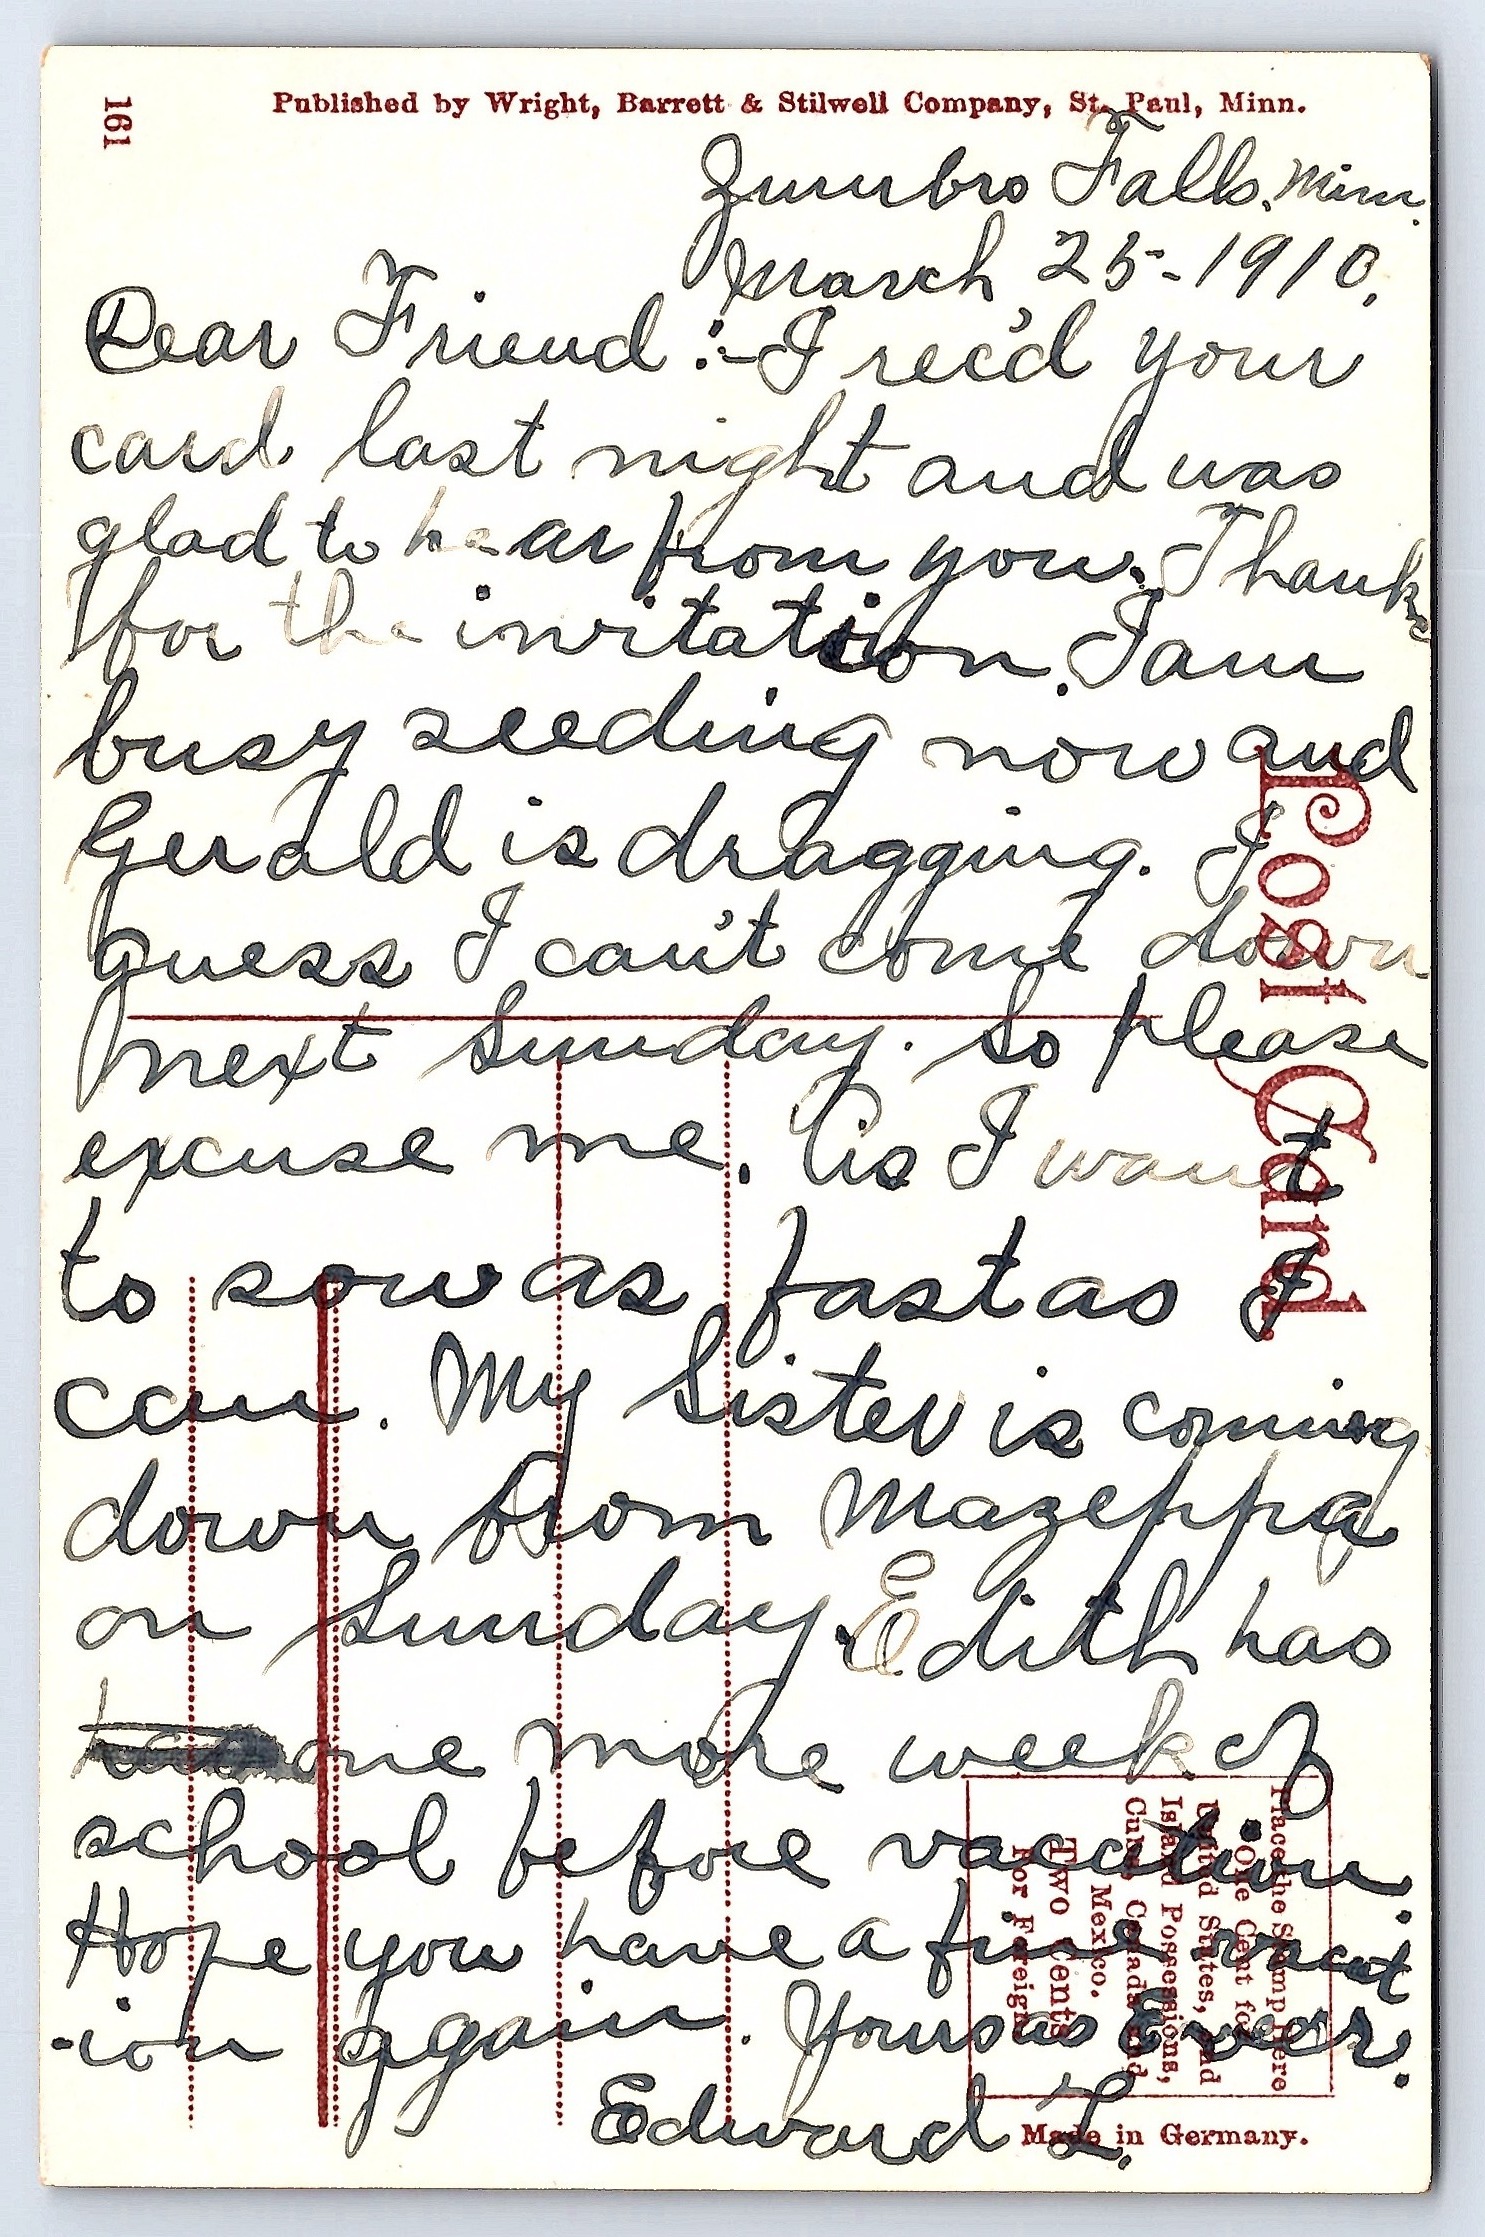 161
Published by Wright, Barrett & Stilwell Company, St. Paul, Minn.
Zumbro Falls, Minn.
March 25-1910.
Dear Friend :- I rec'd your
card last night and was
glad to hear from you. Thanks
for the invitation. I am
busy seeding now and
Gerald is dragging. I
guess I can't come down
next Sunday. So please
excuse me. As I want
to sow as fast as I
can. My Sister is coming
down from Mazeppa
on Sunday. Edith has
has one more week of
school before vacation.
Hope you have a fine vacat
-ion again. Yours as Ever.
Edward L.
Post Card.
Place the Stamp Here
One Cent for
United States, and
Island Possessions,
Cuba, Canada and
Mexico.
Two Cents
For Foreign
Made in Germany.